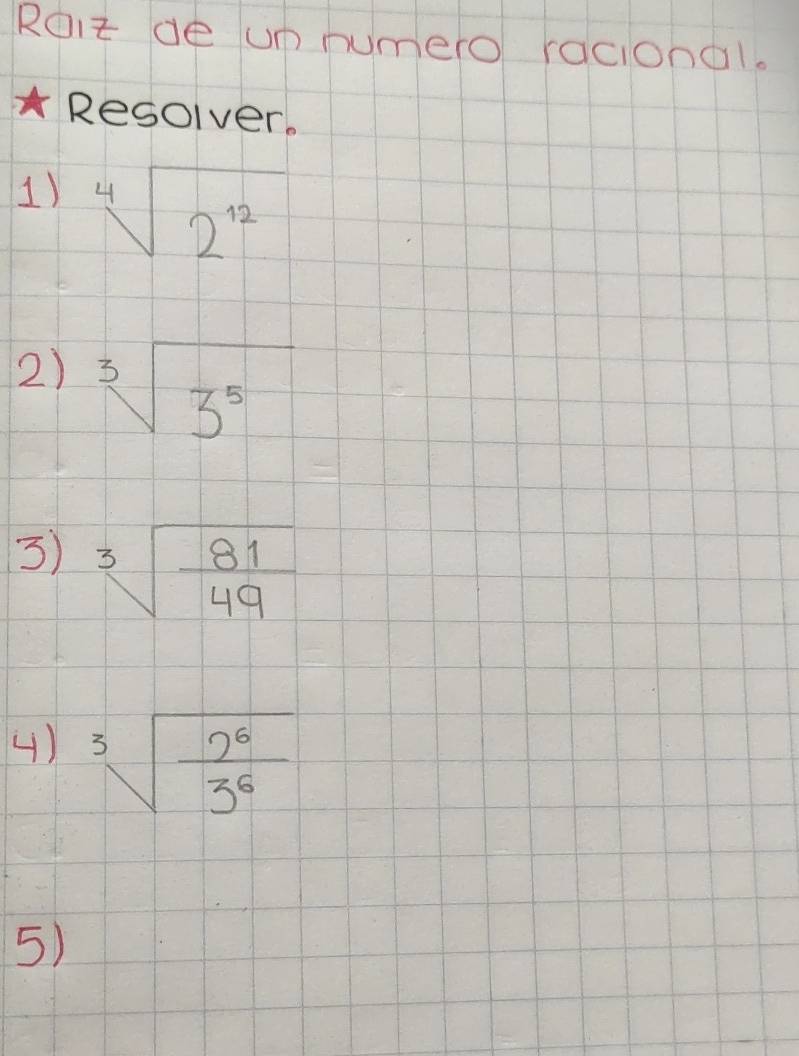 Raiz de un numero racional.
★ Resolver.
1) ⁴√2¹²
2) ³√3⁵
3) ³√81/49
4) ³√2⁶/3⁶
5)